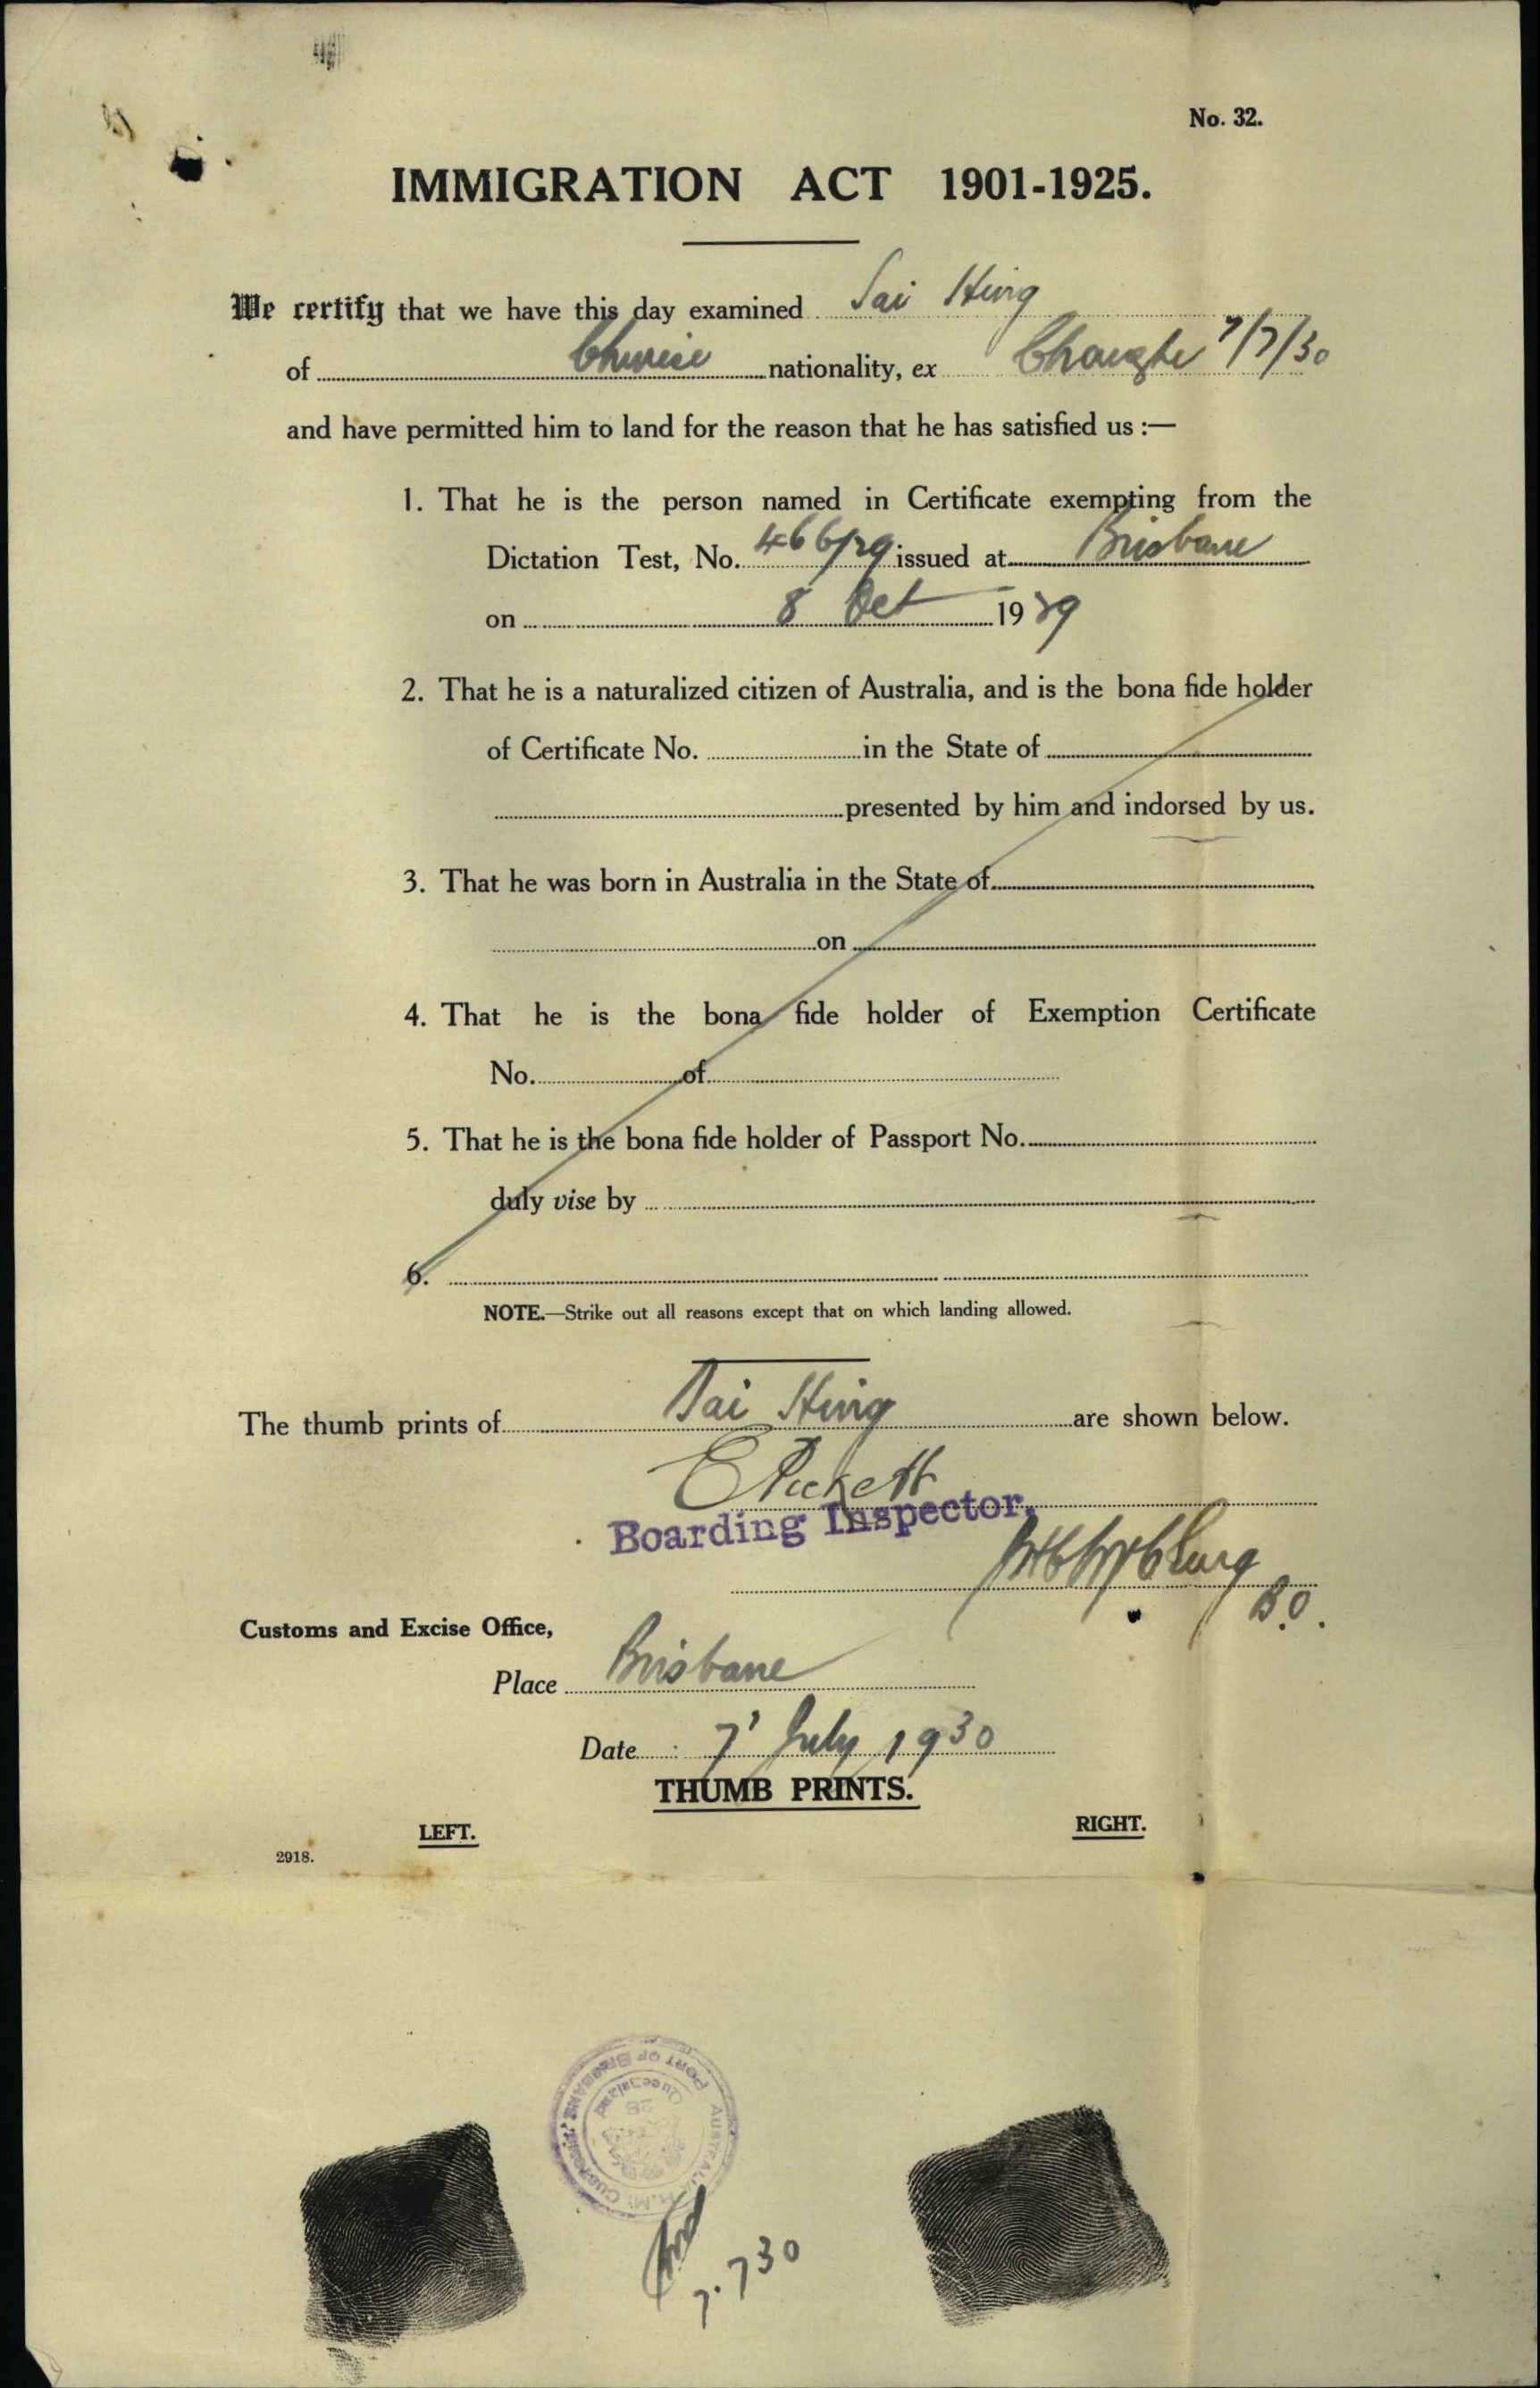 No. 32.
IMMIGRATION ACT 1901-1925.
We certify that we have this day examined Sai Hing
of Chinese nationality, ex Changte 7/7/30
and have permitted him to land for the reason that he has satisfied us :—
1. That he is the person named in Certificate exempting from the
Dictation Test, No. 466/29 issued at Brisbane
on 8 Oct 1929
2. That he is a naturalized citizen of Australia, and is the bona fide holder
of Certificate No. in the State of
presented by him and indorsed by us.
3. That he was born in Australia in the State of
on
4. That he is the bona fide holder of Exemption Certificate
No. of
5. That he is the bona fide holder of Passport No.
duly vise by
6.
NOTE.—Strike out all reasons except that on which landing allowed.
The thumb prints of Tai Hing are shown below.
E Pickett
Boarding Inspector.
B.O.
Customs and Excise Office,
Place Brisbane
Date 7' July 1930
THUMB PRINTS.
LEFT. RIGHT.
2918.
H.M. CUSTOMS PORT OF BRISBANE AUSTRALIA
Queensland
28
7.7 30